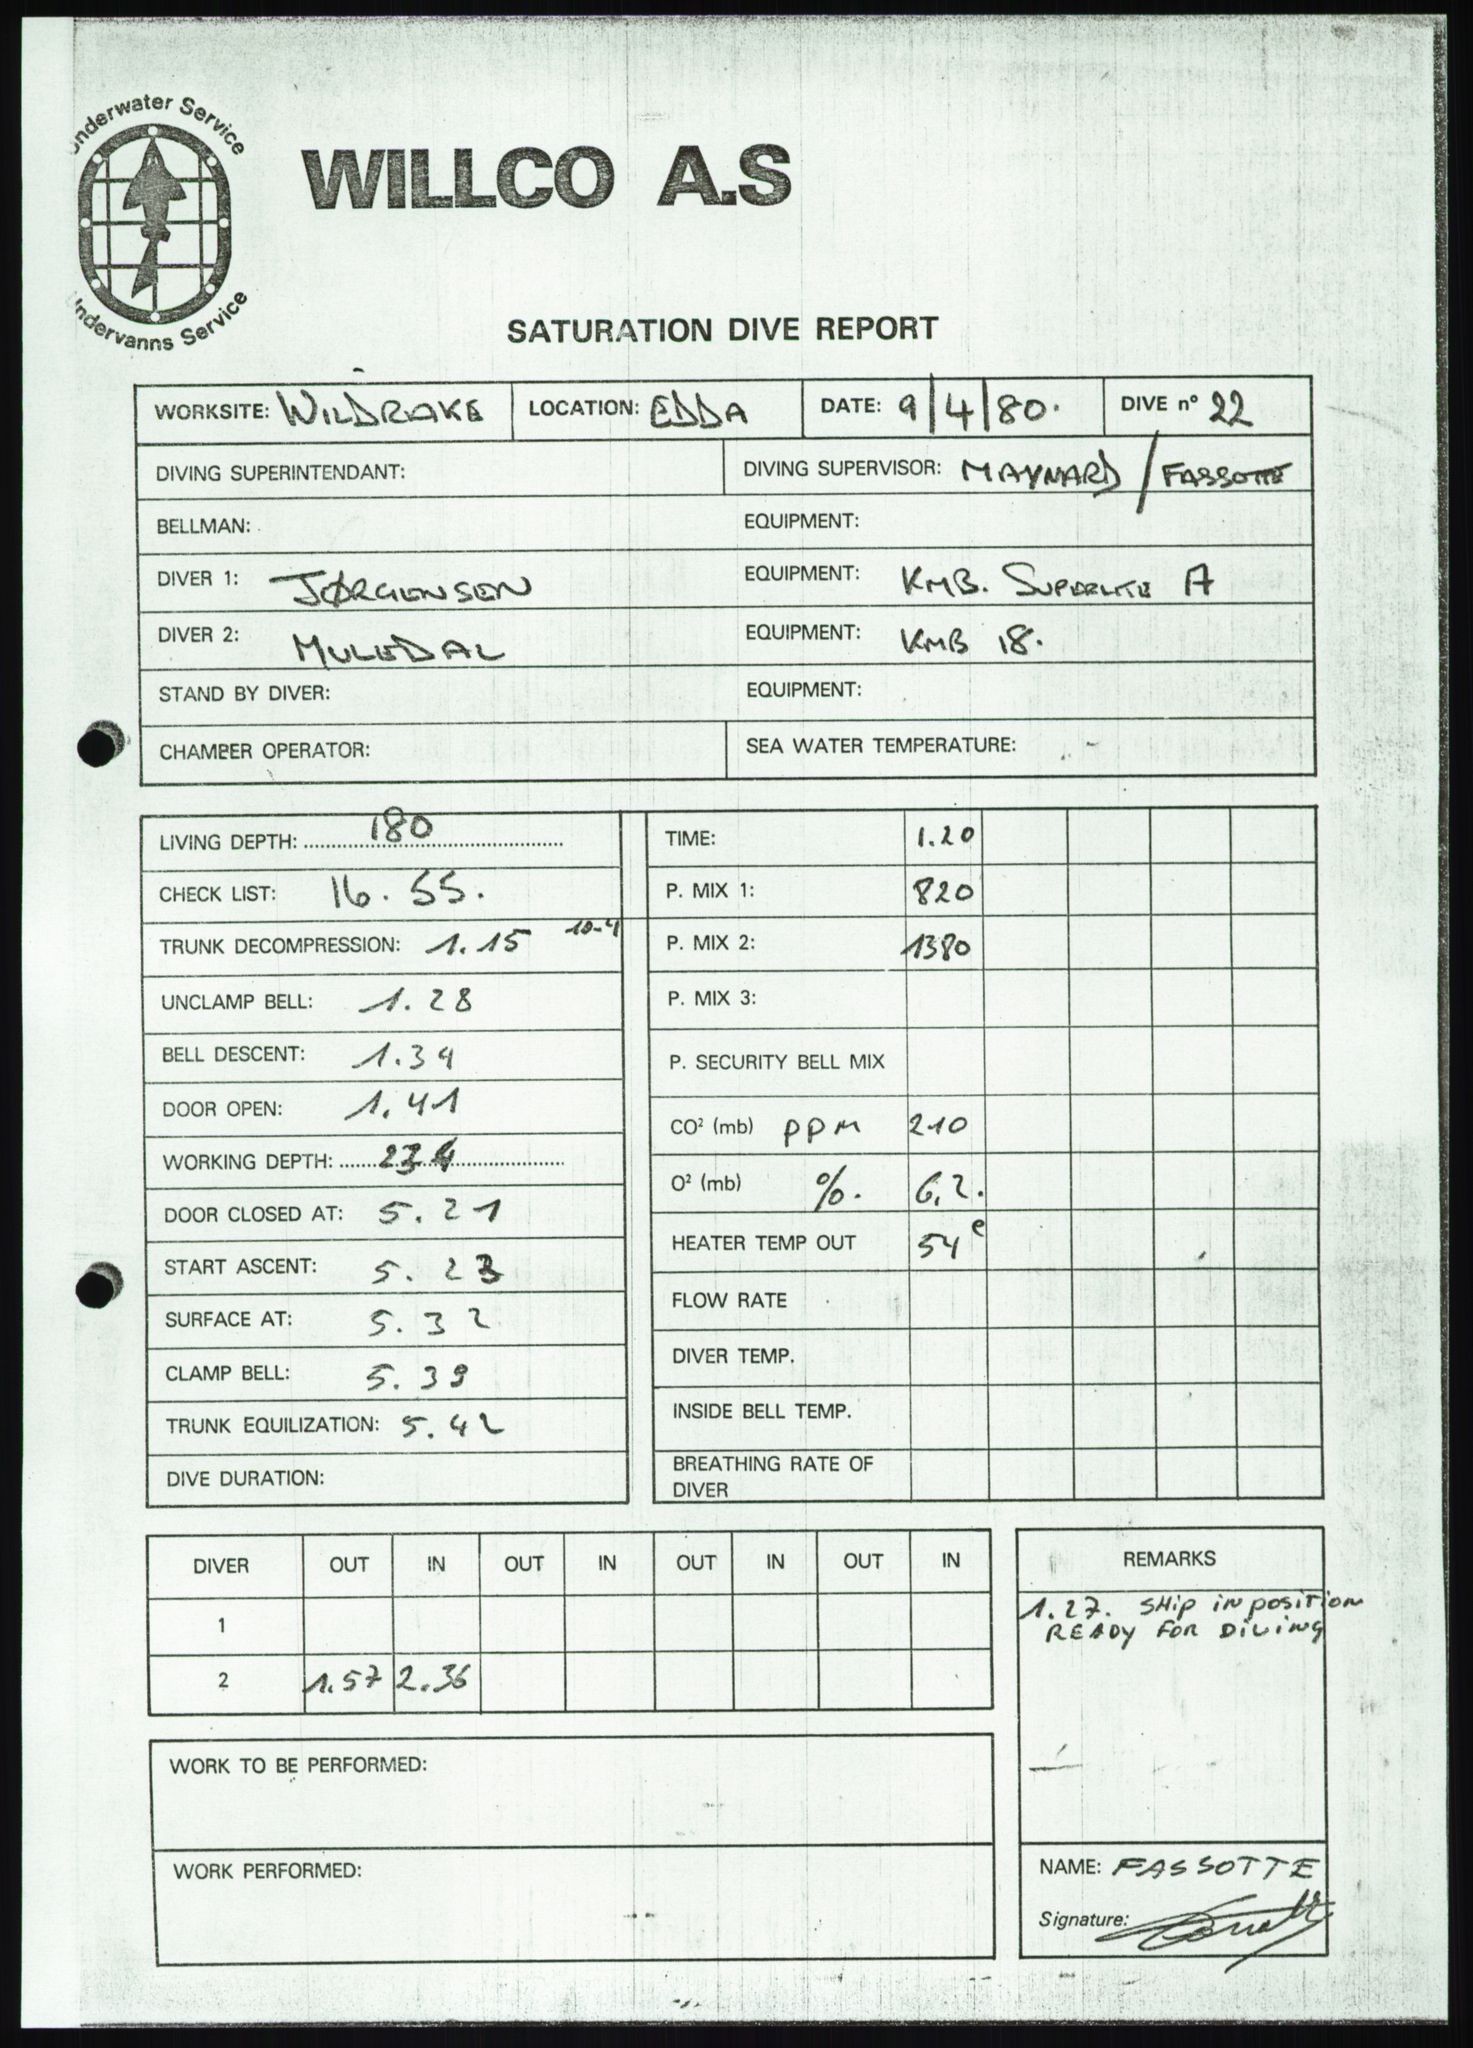 Underwater Service
WILLCO A.S
Undervanns Service
SATURATION DIVE REPORT
WORKSITE: WILDRAKE LOCATION: EDDA DATE: 9/4/80. DIVE nº 22
DIVING SUPERINTENDANT: DIVING SUPERVISOR: MAYNARD / FASSOTTE
BELLMAN: EQUIPMENT:
DIVER 1: JØRGENSEN EQUIPMENT: KMB. SUPERLITE A
DIVER 2: MULEDAL EQUIPMENT: KMB 18.
STAND BY DIVER: EQUIPMENT:
CHAMBER OPERATOR: SEA WATER TEMPERATURE: -
LIVING DEPTH: 180 TIME: 1.20
CHECK LIST: 16.55. P. MIX 1: 820
TRUNK DECOMPRESSION: 1.15 10-4 P. MIX 2: 1380
UNCLAMP BELL: 1.28 P. MIX 3:
BELL DESCENT: 1.34 P. SECURITY BELL MIX
DOOR OPEN: 1.41 CO² (mb) PPM 210
WORKING DEPTH: 234 O² (mb) %. 6,2.
DOOR CLOSED AT: 5.21 HEATER TEMP OUT 54
START ASCENT: 5.23 FLOW RATE
SURFACE AT: 5.32 DIVER TEMP.
CLAMP BELL: 5.39 INSIDE BELL TEMP.
TRUNK EQUILIZATION: 5.42 BREATHING RATE OF
DIVE DURATION: DIVER
DIVER OUT IN OUT IN OUT IN OUT IN REMARKS
1 1.27. SHIP IN POSITION
READY FOR DIVING
2 1.57 2.36
WORK TO BE PERFORMED:
WORK PERFORMED: NAME: FASSOTTE
Signature: